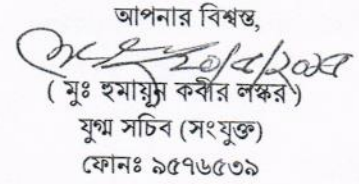 আপনার বিশ্বস্ত,
( মুঃ হুমায়ুন কবীর লস্কর )
যুগ্ম সচিব (সংযুক্ত)
ফোনঃ ৯৫৭৬৫৩৯